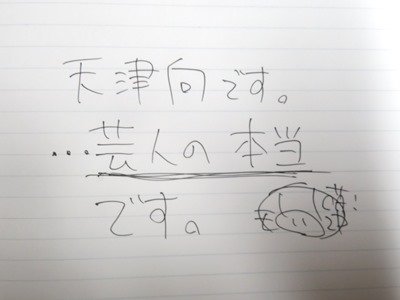 天津向です。
…芸人の本当
です。